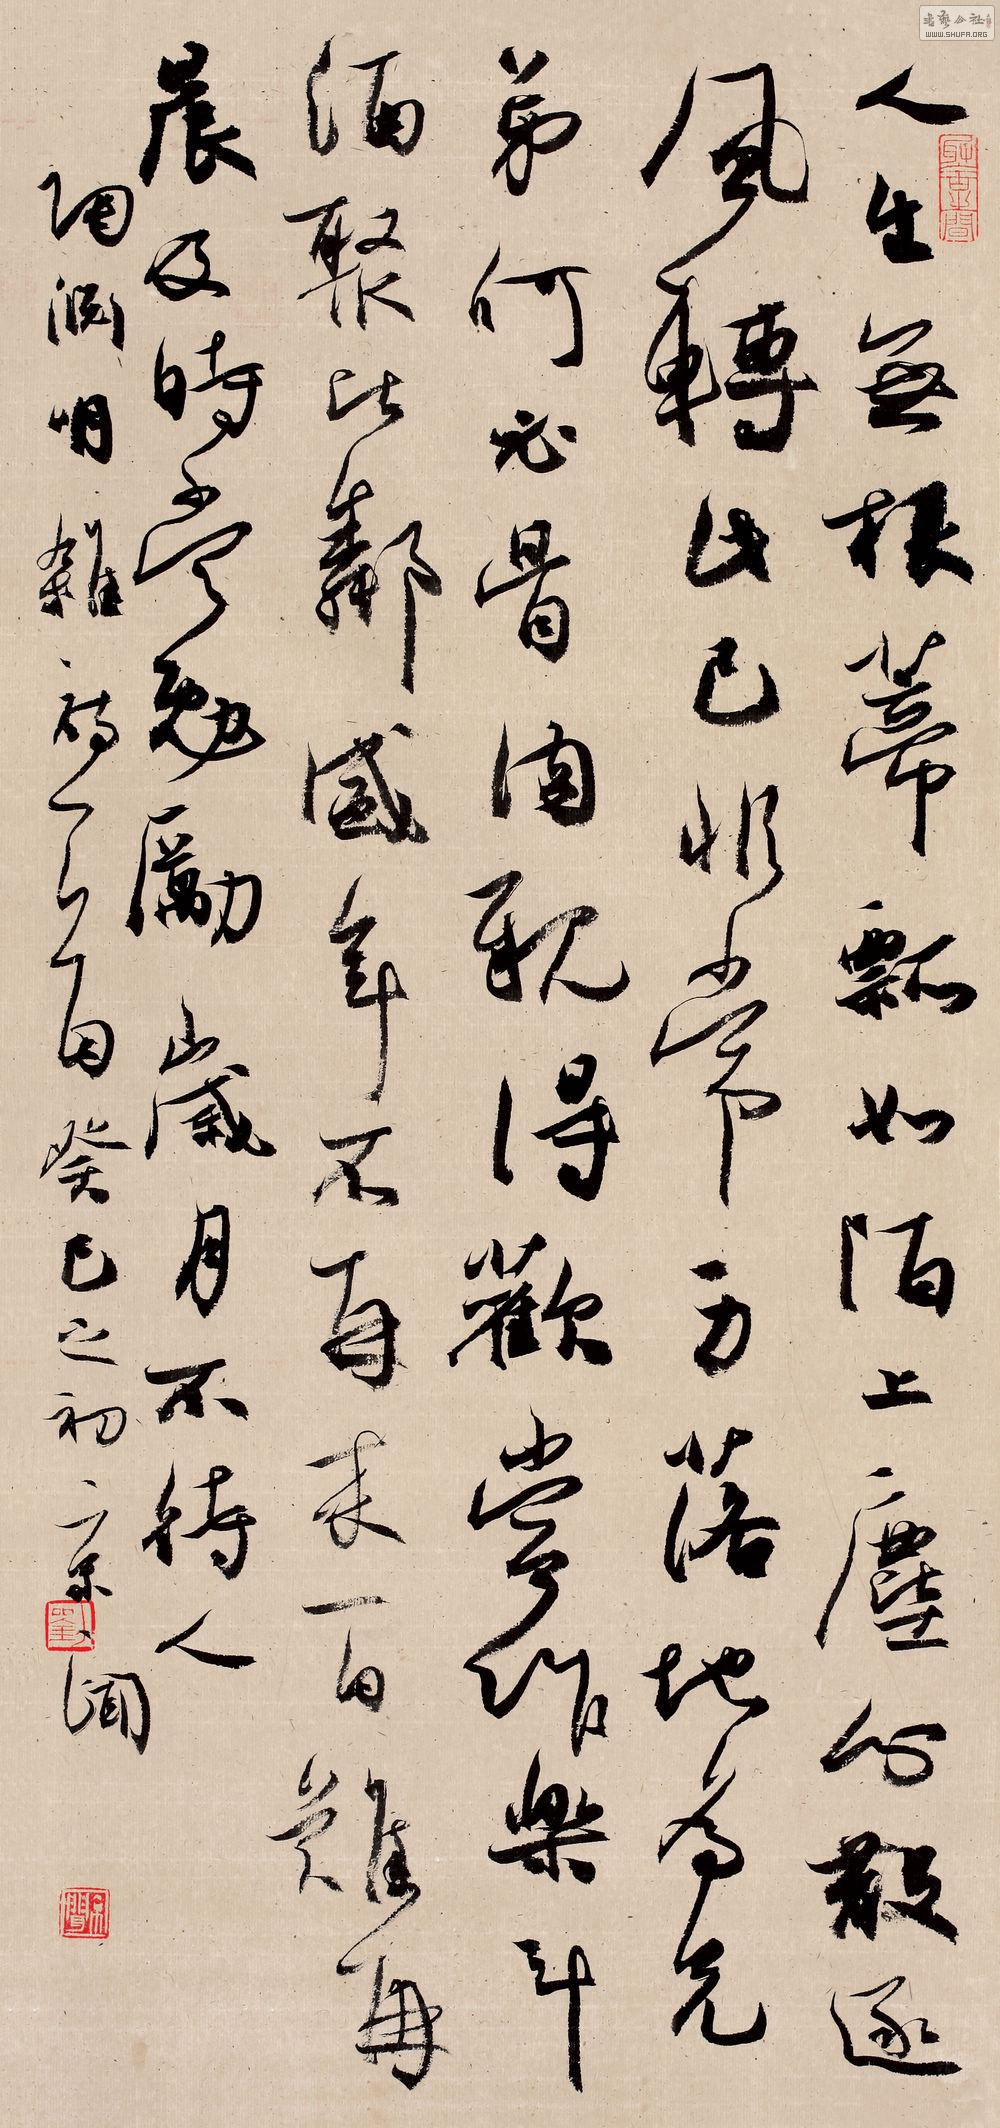 人生無根蒂飄如陌上塵分散逐
風轉此已非常身落地為兄
弟何必骨肉親得歡當作樂斗
酒聚比鄰盛年不再来一日難再
晨及時當勉勵歲月不待人
陶淵明雜詩一首癸巳之初京聞
劉
書藝公社
WWW.SHUFA.ORG